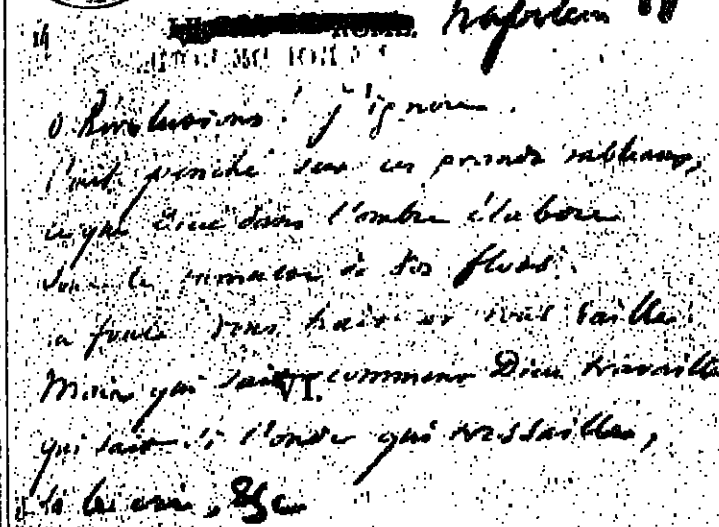 14 ROME. Napoléon II
O Révolutions ! j'ignore.
penché sur ces grands tableaux,
ce que Dieu dans l'ombre élabore
Sous le tumulte de vos flots.
la foule vous hait et vous raille
Mais qui sait comment Dieu travaille
VI.
qui sait si l'onde qui tressaille,
Si le cri, &c